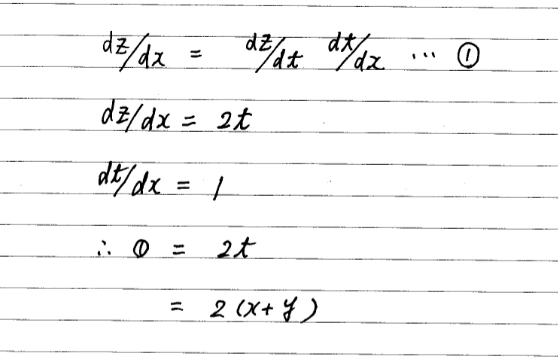 dz/dx = dz/dt dt/dx ... ①
dz/dx = 2t
dt/dx = 1
∴ ① = 2t
= 2(x+y)